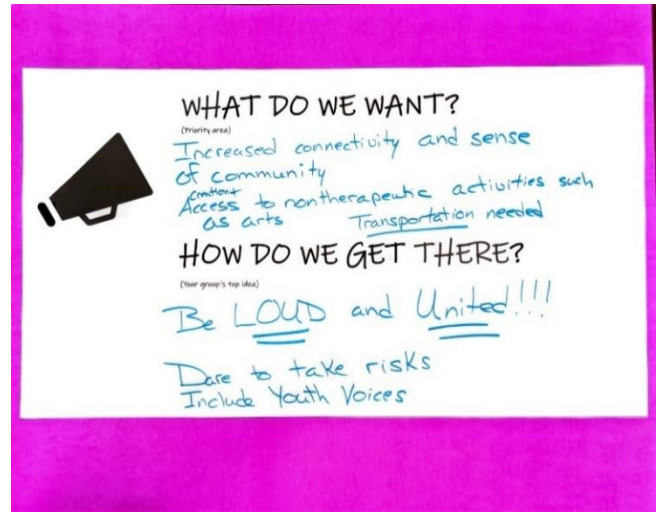 WHAT DO WE WANT?
(Priority area)
Increased connectivity and sense
of community
Creation +
Access to nontherapeutic activities such
as arts Transportation needed
HOW DO WE GET THERE?
(Your group's top idea)
Be LOUD and United!!!
Dare to take risks
Include Youth Voices